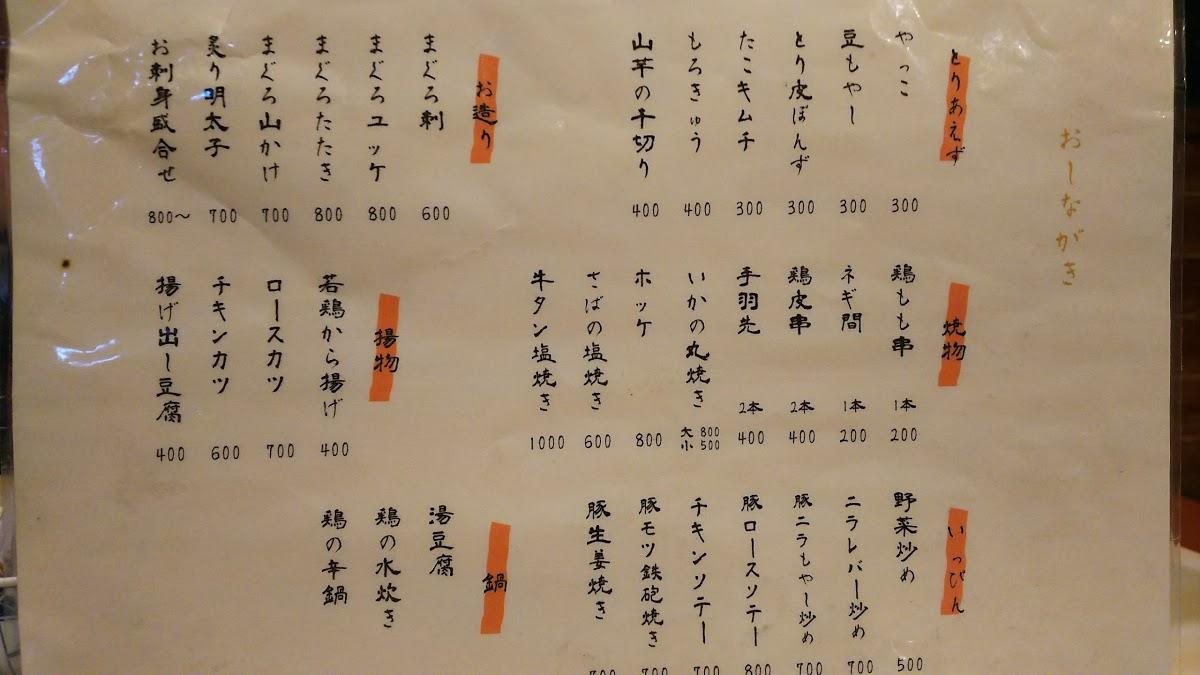 おしながき
とりあえず
やっこ 300
豆もやし 300
とり皮ぽんず 300
たこキムチ 300
もろきゅう 400
山芋の千切り 400
お造り
まぐろ刺 600
まぐろユッケ 800
まぐろたたき 800
まぐろ山かけ 700
炙り明太子 700
お刺身盛合せ 800〜
焼物
鶏もも串 1本 200
ネギ間 1本 200
鶏皮串 2本 400
手羽先 2本 400
いかの丸焼き 大 800 小 500
ホッケ 800
さばの塩焼き 600
牛タン塩焼き 1000
揚物
若鶏から揚げ 400
ロースカツ 700
チキンカツ 600
揚げ出し豆腐 400
いっぴん
野菜炒め 500
ニラレバー炒め 700
豚ニラもやし炒め 700
豚ロースソテー 800
チキンソテー 700
豚モツ鉄砲焼き 700
豚生姜焼き 700
鍋
湯豆腐
鶏の水炊き
鶏の辛鍋